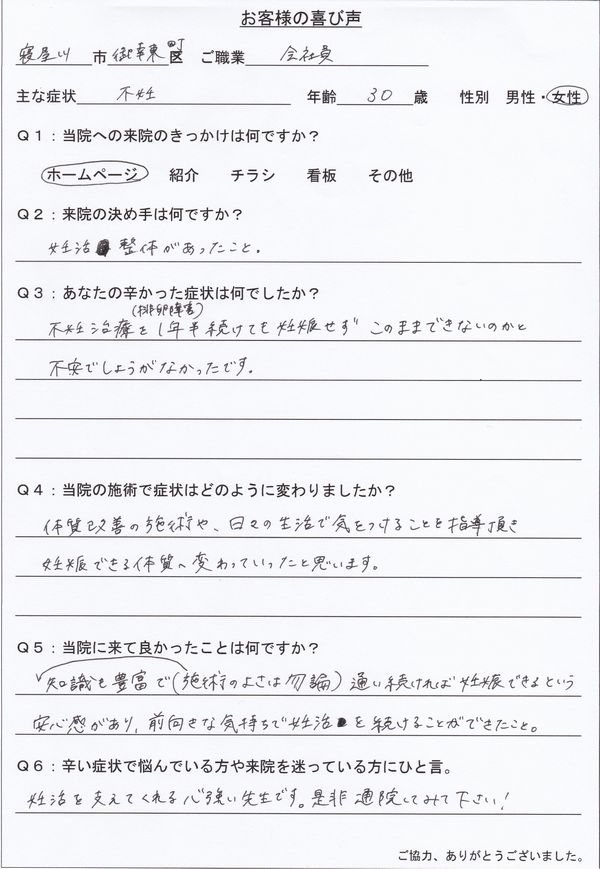 お客様の喜び声
寝屋川 市 御幸東町 区 ご職業 会社員
主な症状 不妊 年齢 30 歳 性別 男性・女性
Q1：当院への来院のきっかけは何ですか？
ホームページ 紹介 チラシ 看板 その他
Q2：来院の決め手は何ですか？
妊活整体があったこと。
Q3：あなたの辛かった症状は何でしたか？
(排卵障害)
不妊治療を1年半続けても妊娠せず このままできないのかと
不安でしょうがなかったです。
Q4：当院の施術で症状はどのように変わりましたか？
体質改善の施術や、日々の生活で気をつけることを指導頂き
妊娠できる体質へ変わっていったと思います。
Q5：当院に来て良かったことは何ですか？
知識も豊富で(施術のよさは勿論) 通い続ければ妊娠できるという
安心感があり、前向きな気持ちで妊活を続けることができたこと。
Q6：辛い症状で悩んでいる方や来院を迷っている方にひと言。
妊活を支えてくれる心強い先生です。是非通院してみて下さい！
ご協力、ありがとうございました。